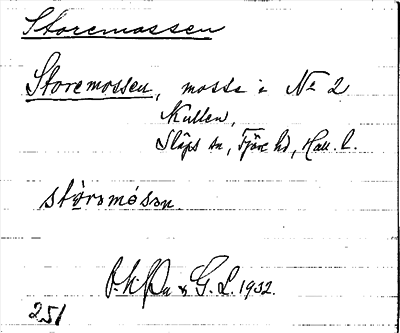 Storemossen
Storemossen, mosse i No 2
Kullen,
Släps sn, Fjäre hd, Hall. l.
stòrəmósən.
G. L. 1932.
251